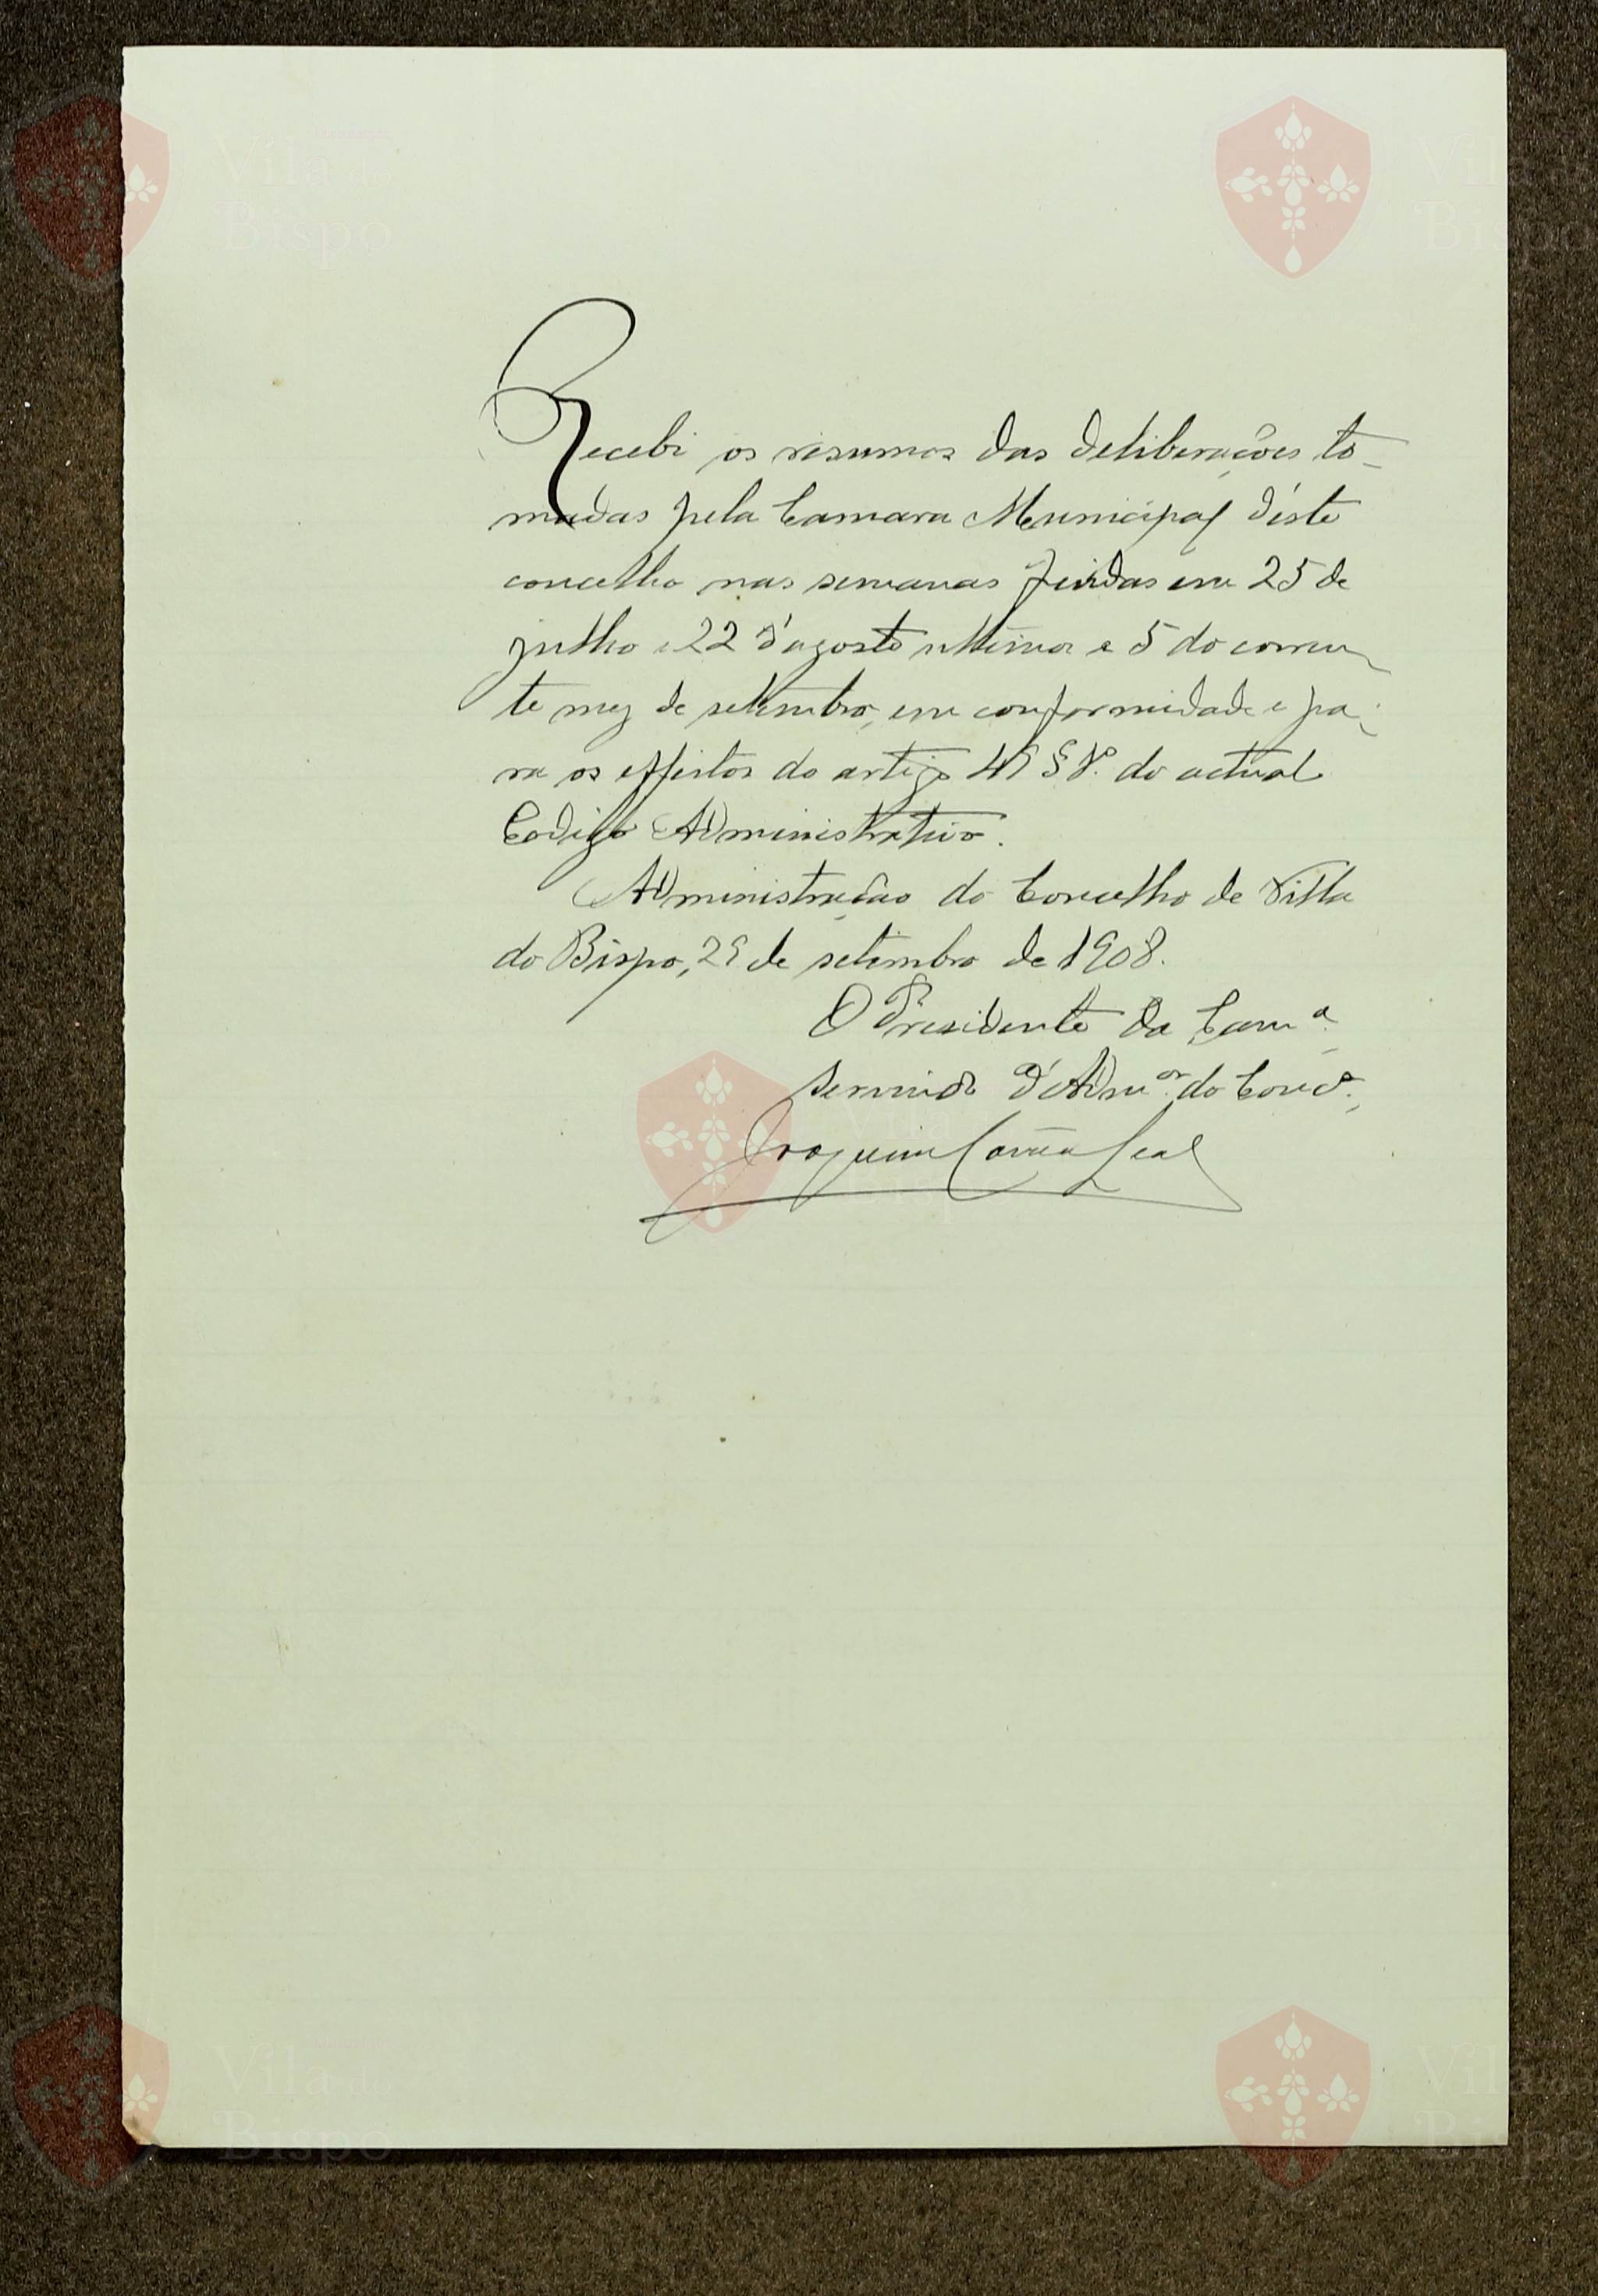 Vila do
Bispo
Recebi os resumos das deliberações to-
madas pela Camara Municipal d'este
concelho nas semanas findas em 25 de
julho e 22 d'agosto ultimos e 5 do corren-
te mez de setembro, em conformidade e pa-
ra os effeitos do artigo do actual
Codigo Administrativo.
Administração do Concelho de Villa
do Bispo, 29 de setembro de 1908.
O Presidente da Camª
servindo d'Admor do Conco.,
Joaquim Corrêa Leal